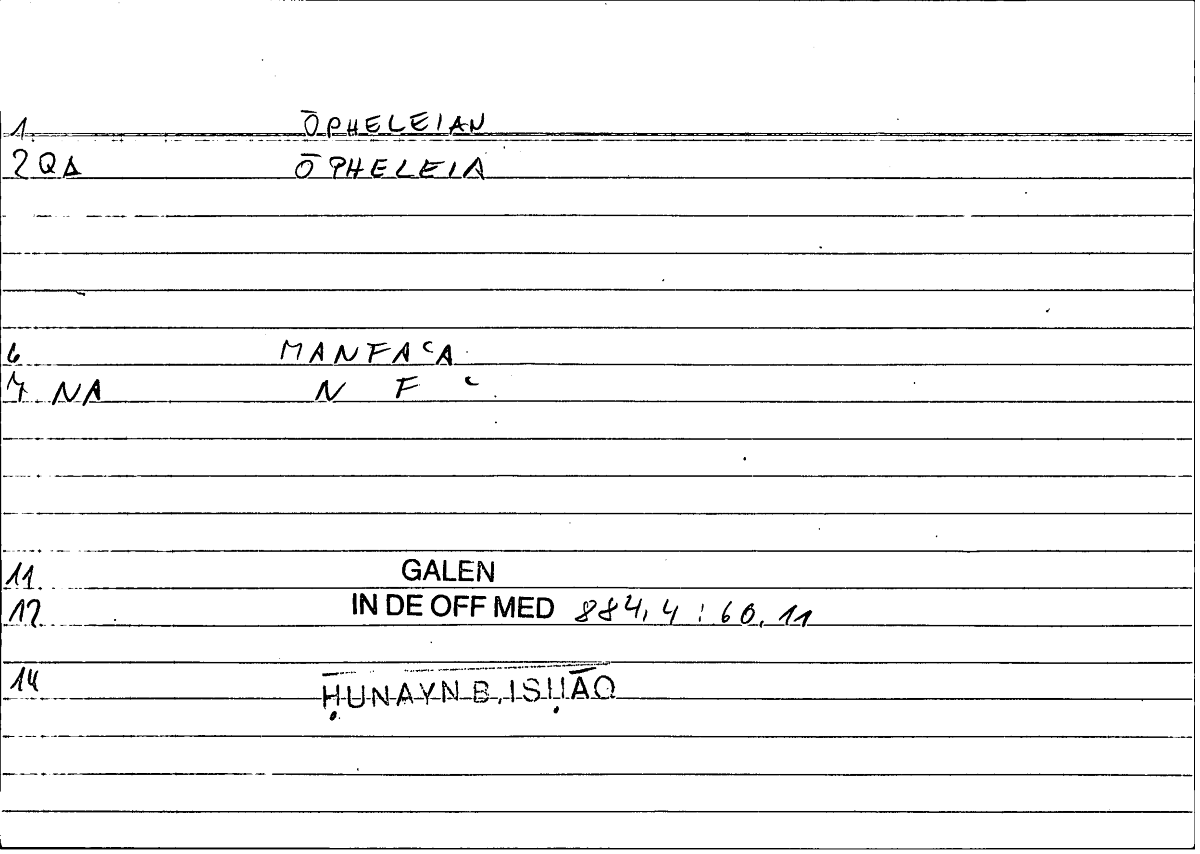 1 ŌPHELEIAN
2 QΔ ŌPHELEIA
6 MANFAʿA
7 NA N F ʿ
11 GALEN
12 IN DE OFF MED 884,4 : 60,11
14 ḤUNAYN B. ISḤĀQ